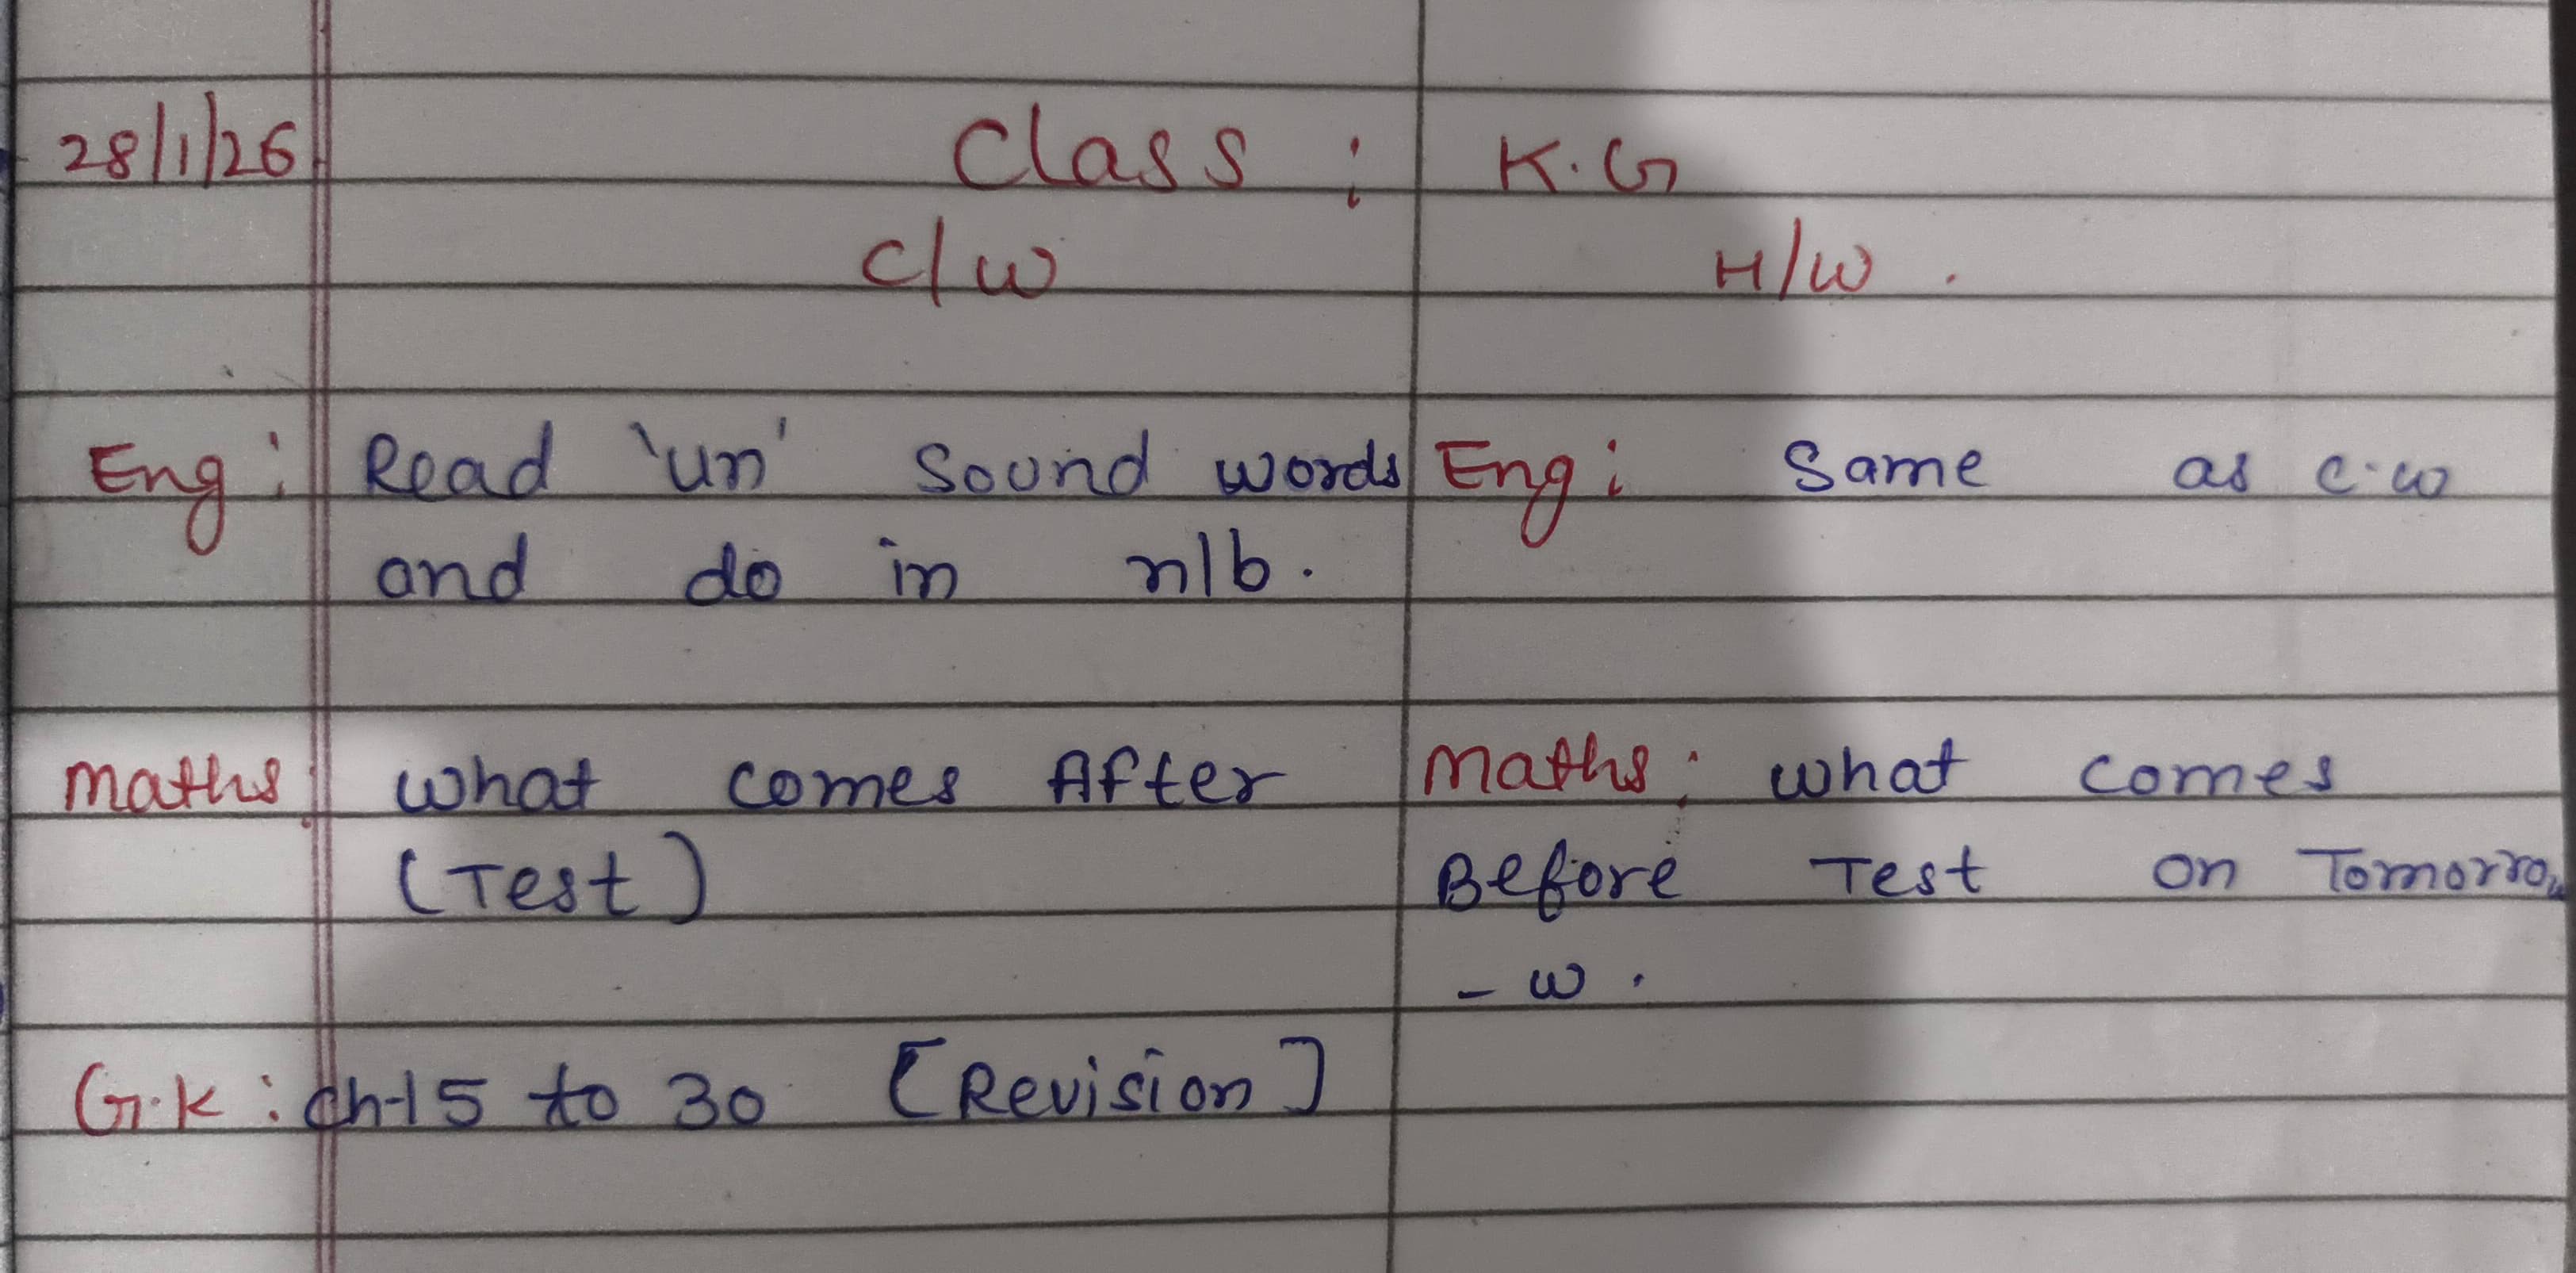 28/1/26 Class : K.G
C/W H/W .
Eng : Read 'un' Sound words Eng : Same as c.w
and do in n/b.
Maths : What comes After Maths : What comes
(Test) Before Test on Tomorro
- w .
G.K : ch-15 to 30 [Revision]